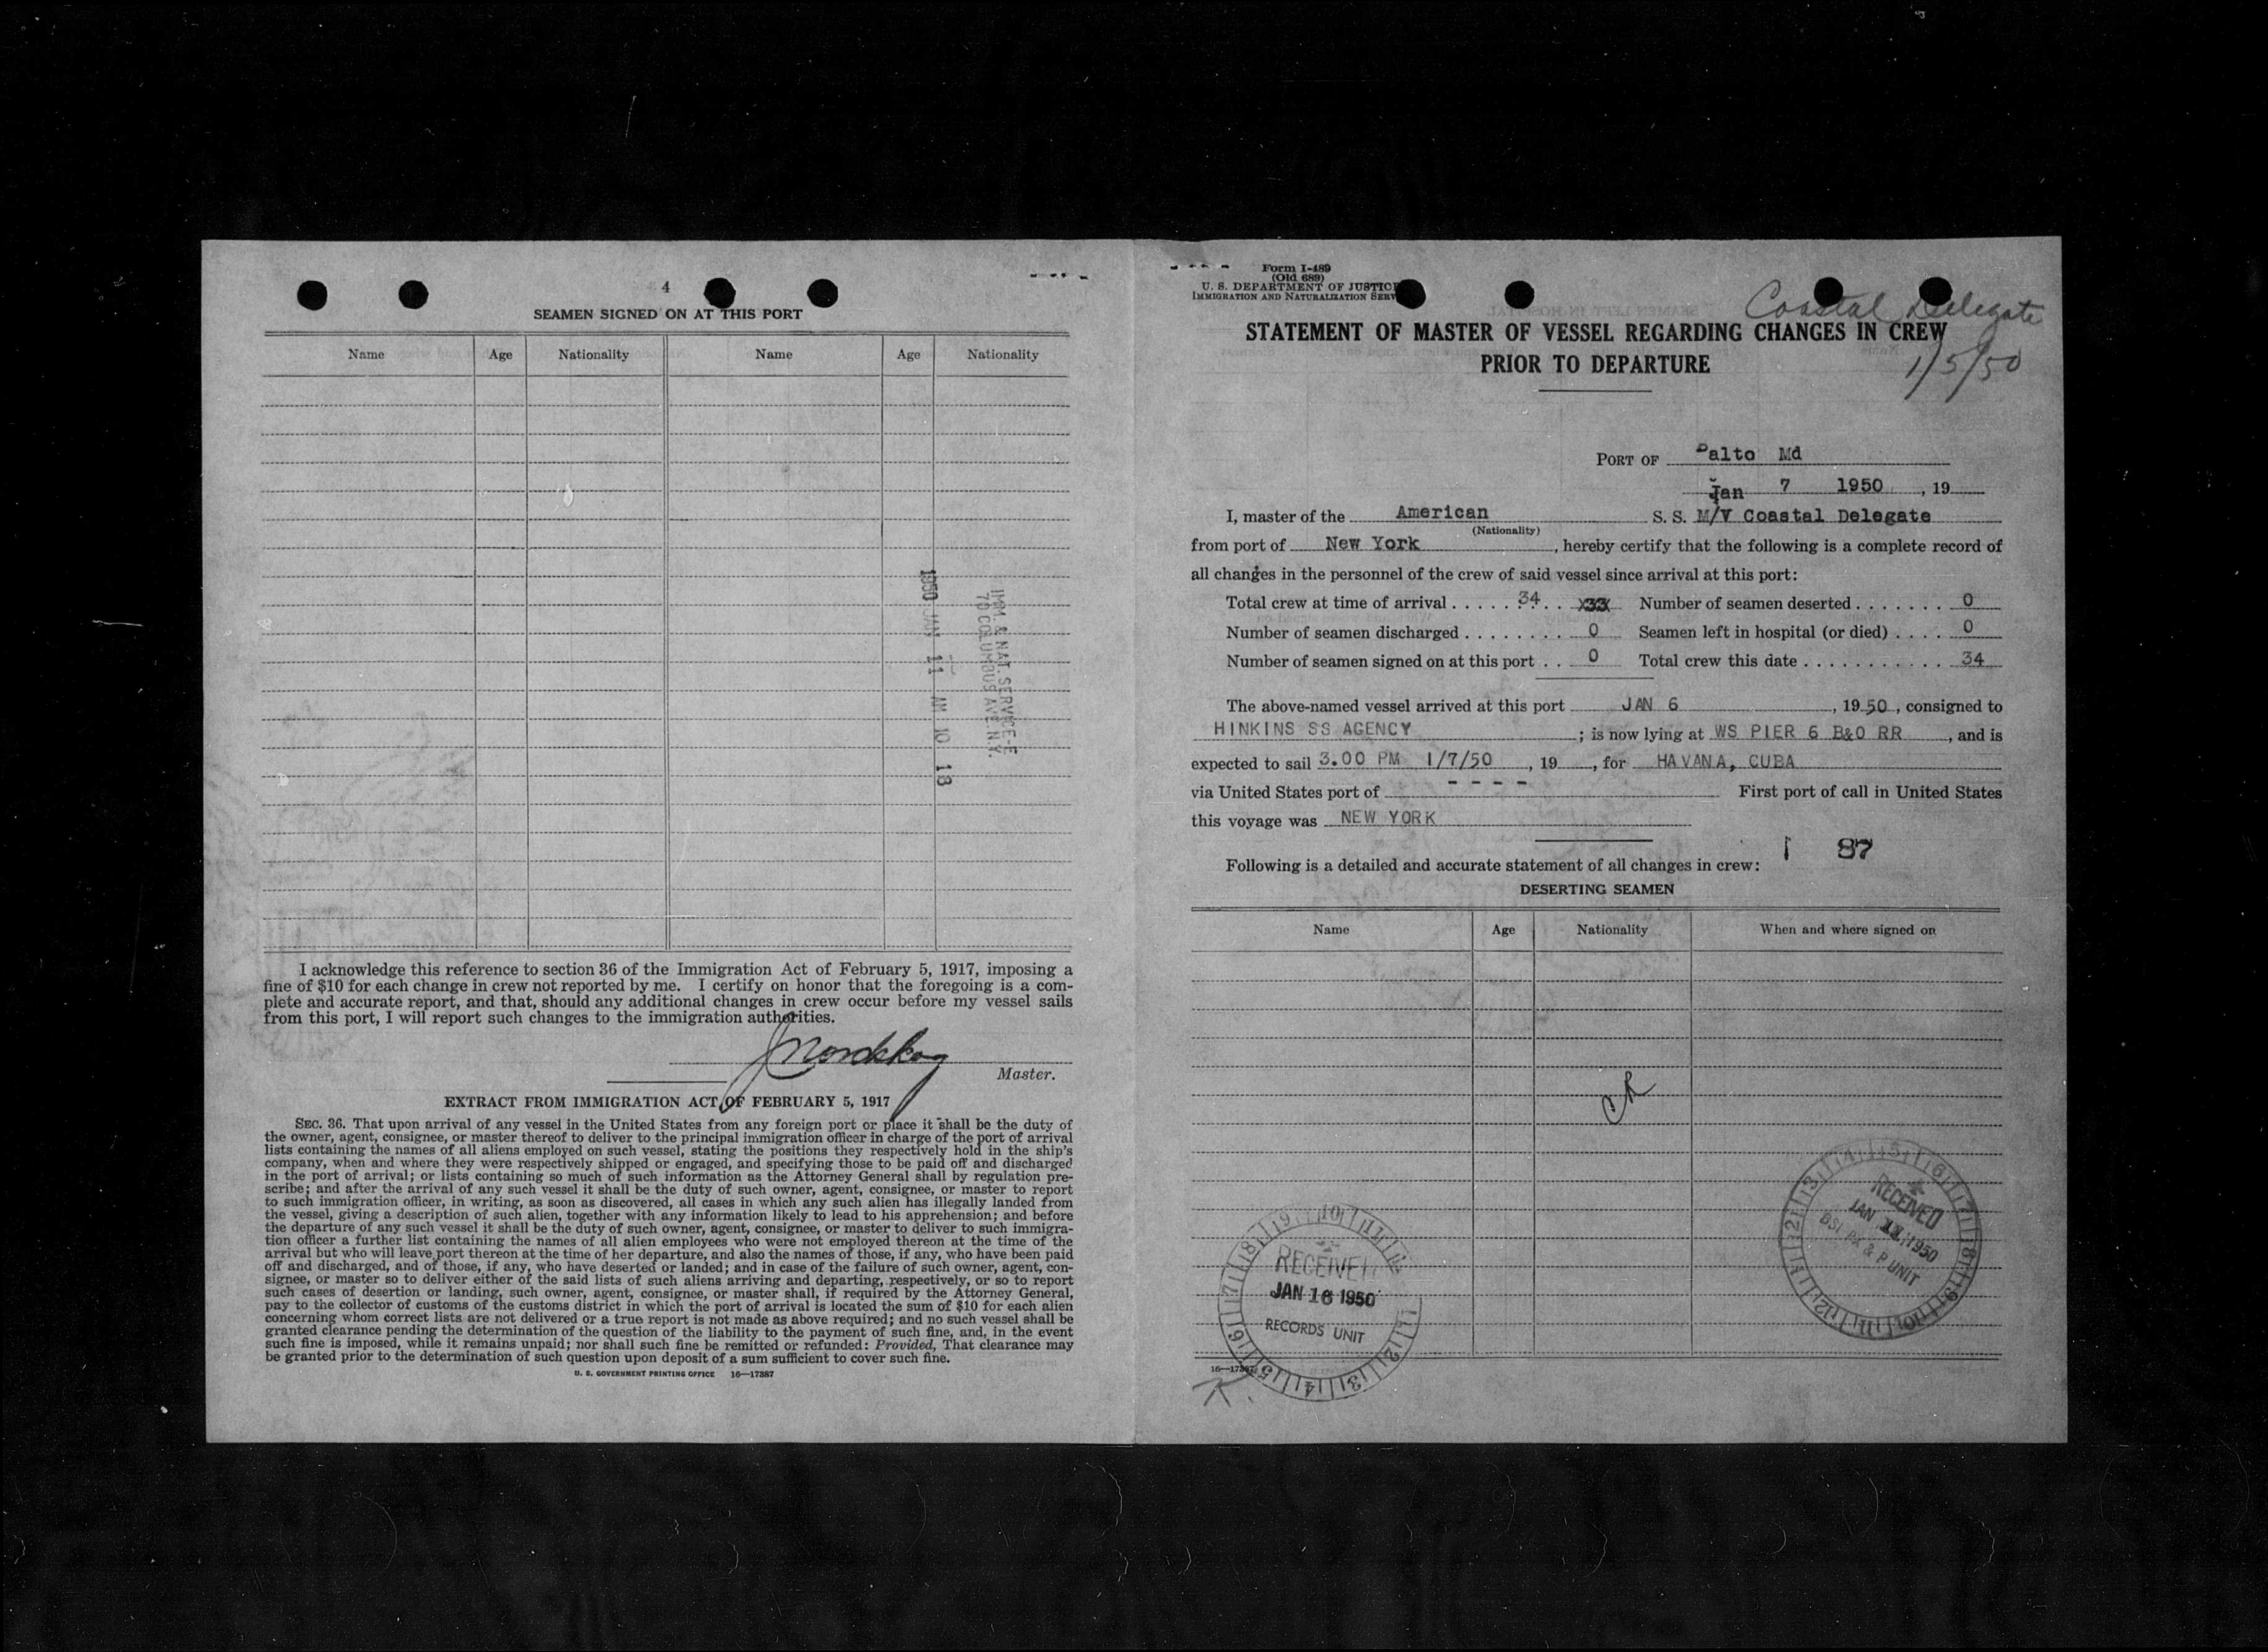 4
SEAMEN SIGNED ON AT THIS PORT
Name Age Nationality Name Age Nationality
IMM. & NAT. SERVICE-E
70 COLUMBUS AVE N.Y.
1950 JAN 11 AM 10 18
I acknowledge this reference to section 36 of the Immigration Act of February 5, 1917, imposing a
fine of $10 for each change in crew not reported by me. I certify on honor that the foregoing is a com-
plete and accurate report, and that, should any additional changes in crew occur before my vessel sails
from this port, I will report such changes to the immigration authorities.
JNordskog
Master.
EXTRACT FROM IMMIGRATION ACT OF FEBRUARY 5, 1917
SEC. 36. That upon arrival of any vessel in the United States from any foreign port or place it shall be the duty of
the owner, agent, consignee, or master thereof to deliver to the principal immigration officer in charge of the port of arrival
lists containing the names of all aliens employed on such vessel, stating the positions they respectively hold in the ship's
company, when and where they were respectively shipped or engaged, and specifying those to be paid off and discharged
in the port of arrival; or lists containing so much of such information as the Attorney General shall by regulation pre-
scribe; and after the arrival of any such vessel it shall be the duty of such owner, agent, consignee, or master to report
to such immigration officer, in writing, as soon as discovered, all cases in which any such alien has illegally landed from
the vessel, giving a description of such alien, together with any information likely to lead to his apprehension; and before
the departure of any such vessel it shall be the duty of such owner, agent, consignee, or master to deliver to such immigra-
tion officer a further list containing the names of all alien employees who were not employed thereon at the time of the
arrival but who will leave port thereon at the time of her departure, and also the names of those, if any, who have been paid
off and discharged, and of those, if any, who have deserted or landed; and in case of the failure of such owner, agent, con-
signee, or master so to deliver either of the said lists of such aliens arriving and departing, respectively, or so to report
such cases of desertion or landing, such owner, agent, consignee, or master shall, if required by the Attorney General,
pay to the collector of customs of the customs district in which the port of arrival is located the sum of $10 for each alien
concerning whom correct lists are not delivered or a true report is not made as above required; and no such vessel shall be
granted clearance pending the determination of the question of the liability to the payment of such fine, and, in the event
such fine is imposed, while it remains unpaid; nor shall such fine be remitted or refunded: Provided, That clearance may
be granted prior to the determination of such question upon deposit of a sum sufficient to cover such fine.
U. S. GOVERNMENT PRINTING OFFICE 16—17387
Form I-489
(Old 689)
U. S. DEPARTMENT OF JUSTICE
IMMIGRATION AND NATURALIZATION SERV
Coastal Delegate
1/5/50
STATEMENT OF MASTER OF VESSEL REGARDING CHANGES IN CREW
PRIOR TO DEPARTURE
PORT OF Balto Md
Jan 7 1950, 19
I, master of the American S. S. M/V Coastal Delegate
(Nationality)
from port of New York, hereby certify that the following is a complete record of
all changes in the personnel of the crew of said vessel since arrival at this port:
Total crew at time of arrival . . . . . 34 . . x33x Number of seamen deserted . . . . . . . 0
Number of seamen discharged . . . . . . . . 0 Seamen left in hospital (or died) . . . . 0
Number of seamen signed on at this port . . 0 Total crew this date . . . . . . . . . . . 34
The above-named vessel arrived at this port JAN 6, 1950, consigned to
HINKINS SS AGENCY; is now lying at WS PIER 6 B&O RR, and is
expected to sail 3.00 PM 1/7/50, 19, for HAVANA, CUBA
via United States port of - - - - First port of call in United States
this voyage was NEW YORK
1 87
Following is a detailed and accurate statement of all changes in crew:
DESERTING SEAMEN
Name Age Nationality When and where signed on
RECEIVED
JAN 1950
BSI. PX & P UNIT
RECEIVED
JAN 16 1950
RECORDS UNIT
16—17387